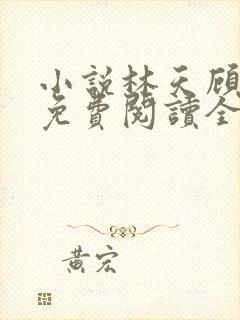 小說林天顧
免費閱讀全
黃宏